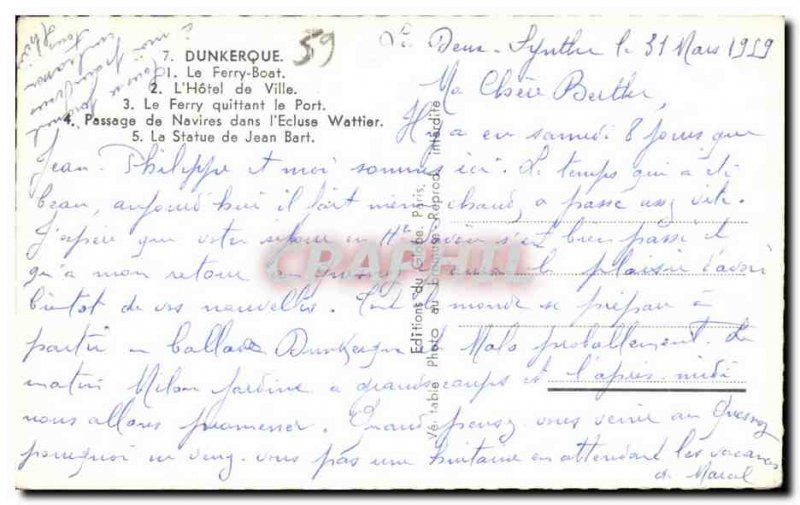 7. DUNKERQUE.
1. Le Ferry-Boat.
2. L'Hôtel de Ville.
3. Le Ferry quittant le Port.
4. Passage de Navires dans l'Ecluse Wattier.
5. La Statue de Jean Bart.
59
Editions du Globe, Paris.
Véritable Photo au Bromure - Reprod. interdite
CARPHIL
le 31 Mars 1959
Ma Chère Berthe,
Il y a eu samedi 8 jours que
Jean-Philippe et moi sommes ici. Le temps qui a été
beau, aujourd'hui il fait même chaud, a passé assez vite.
J'espère que votre retour en Hte s'est bien passé et
qu'à mon retour au Quesnoy j'aurai le plaisir d'avoir
bientôt de vos nouvelles. Tout le monde se prépare à
partir en ballade Dunkerque et Malo probablement. Le
matin Milon jardine à grands coups et l'après-midi
nous allons promener. Quand pensez-vous venir au Quesnoy
pourquoi ne venez-vous pas une huitaine en attendant les vacances
de Marcel